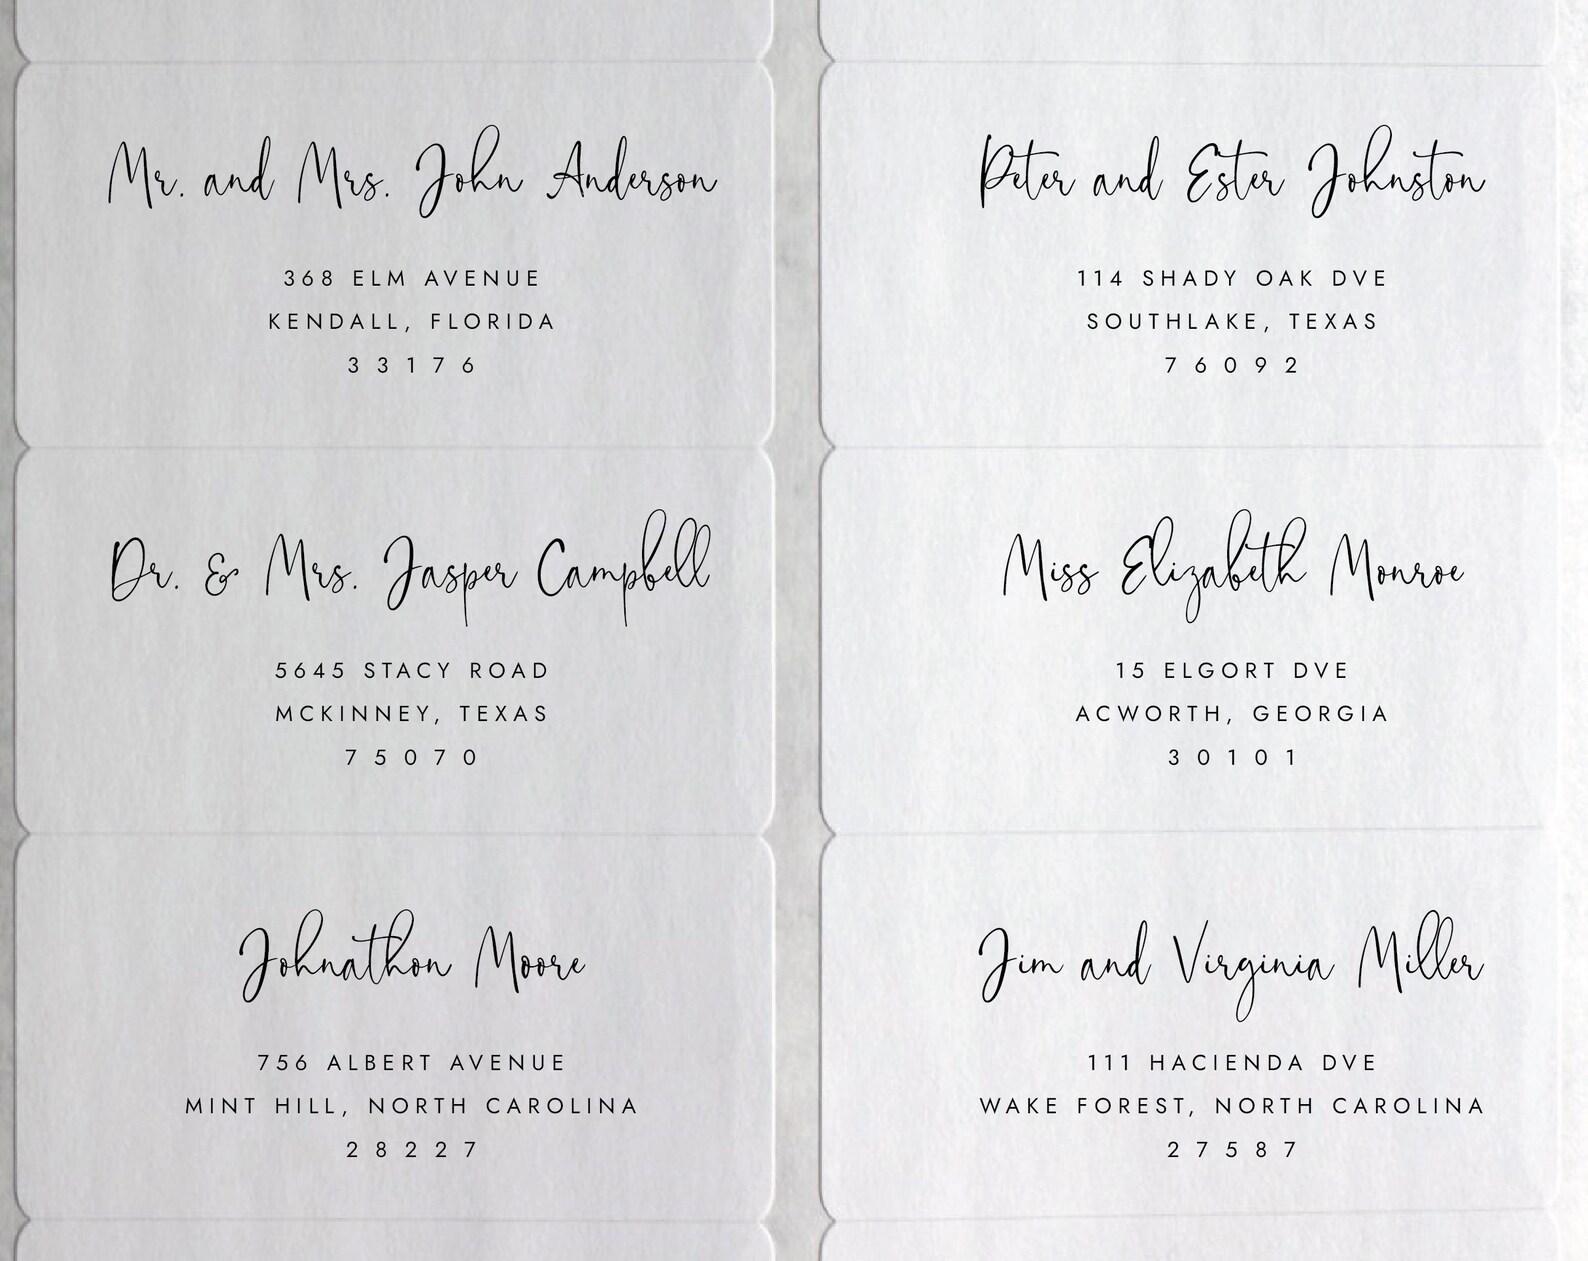 Mr. and Mrs. John Anderson
368 ELM AVENUE
KENDALL, FLORIDA
33176
Peter and Ester Johnston
114 SHADY OAK DVE
SOUTHLAKE, TEXAS
76092
Dr. & Mrs. Jasper Campbell
5645 STACY ROAD
MCKINNEY, TEXAS
75070
Miss Elizabeth Monroe
15 ELGORT DVE
ACWORTH, GEORGIA
30101
Johnathon Moore
756 ALBERT AVENUE
MINT HILL, NORTH CAROLINA
28227
Jim and Virginia Miller
111 HACIENDA DVE
WAKE FOREST, NORTH CAROLINA
27587